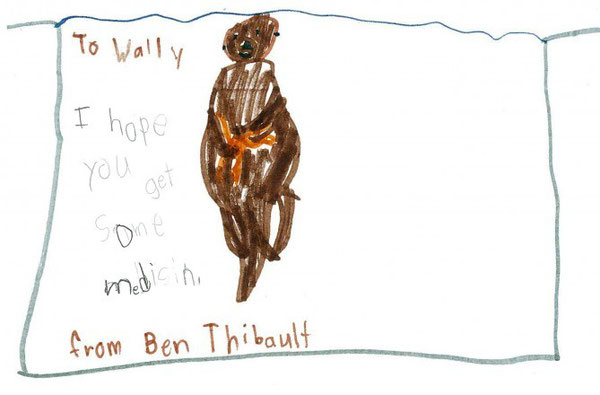 To Wally
I hope
you get
some
medisin.
from Ben Thibault